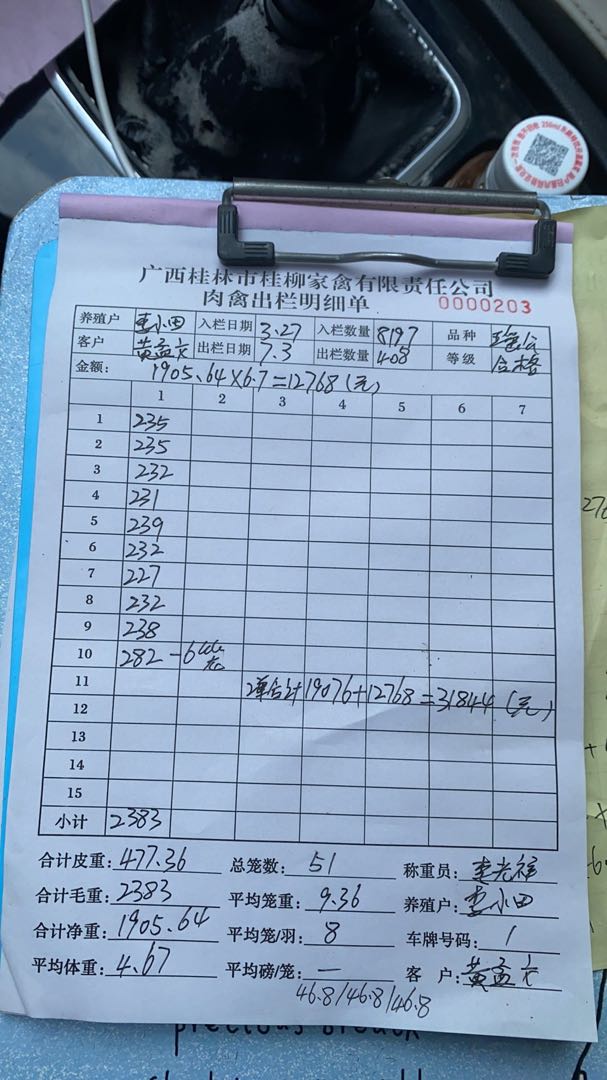 广西桂林市桂柳家禽有限责任公司
肉禽出栏明细单 0000203
养殖户 李小田 入栏日期 3.27 入栏数量 8197 品种
客户 黄孟六 出栏日期 7.3 出栏数量 408 等级 合格
金额: 1905.64×6.7=12768(元)
1 2 3 4 5 6 7
1 235
2 235
3 232
4 231
5 239
6 232
7 227
8 232
9 238
10 282 -6
11
2单合计19076+12768=31844(元)
12
13
14
15
小计 2383
合计皮重: 477.36 总笼数: 51 称重员: 李光裕
合计毛重: 2383 平均笼重: 9.36 养殖户: 李小田
合计净重: 1905.64 平均笼/羽: 8 车牌号码: 1
平均体重: 4.67 平均磅/笼: — 客 户: 黄孟六
46.8/46.8/46.8
precious